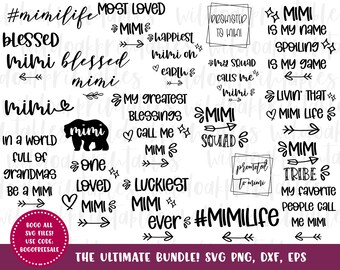 #mimilife
blessed
mimi
mimi
IN A WORLD
FULL OF
GRANDMAS
BE A MIMI
MOST LOVED
MIMI
blessed
mimi
mimi
ONE
LOVED
MIMI
HAPPIEST
MIMI ON
EARTH
MY GREATEST
BLESSINGS
CALL ME
MIMI
LUCKIEST
MIMI
EVER
PROMOTED
TO MIMI
MY SQUAD
CALLS ME
mimi
MIMI
SQUAD
promoted
to mimi
#MIMILIFE
MIMI
IS MY NAME
SPOILING
IS MY GAME
LIVIN' THAT
MIMI LIFE
MIMI
TRIBE
MY FAVORITE
PEOPLE CALL
ME MIMI
BOGO ALL
SVG FILES!
USE CODE:
BOGOFREESALE
THE ULTIMATE BUNDLE! SVG PNG, DXF, EPS